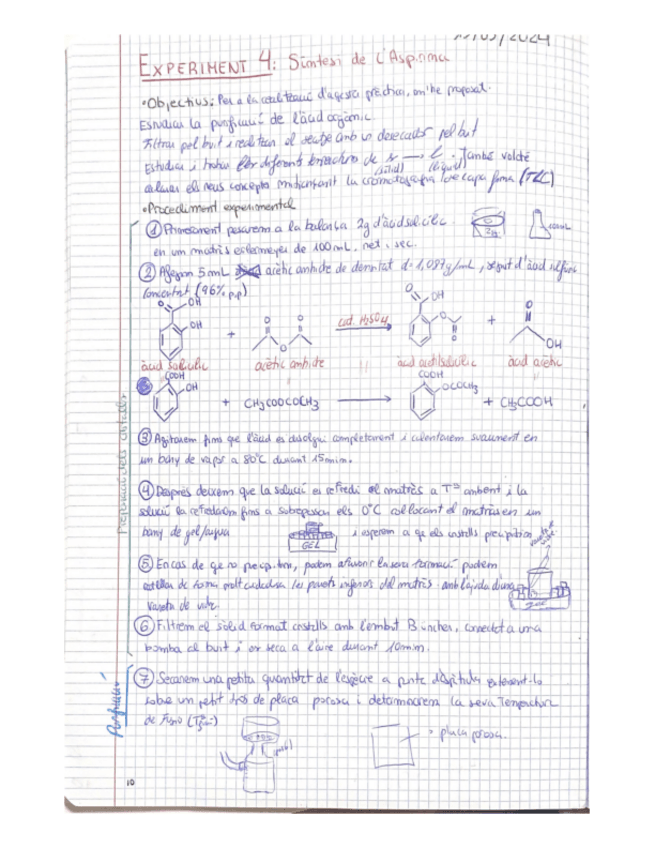 /05/2024
EXPERIMENT 4: Síntesi de l'Aspirina
•Objectius: Per a la realització d'aquesta pràctica, m'he proposat.
Estudiar la purificació de l'àcid orgànic.
Filtrar pel buit i realitzar el
desecador pel buit
Estudiar i trobar les diferents
de s → l. També voldré
(sòlid) (líquid)
els meus conceptes mitjançant la cromatografia de capa fina (TLC)
•Procediment experimental
① Primerament pesarem a la balança 2g d'àcid salicílic
2g
100mL
en un matràs erlenmeyer de 100 mL, net i sec.
② Afegim 5 mL acètic anhidre de densitat d=1,087g/mL, seguit d'àcid sulfúric
concentrat (96% p.p)
O OH O OH
OH O O O O
+ cat. H2SO4 +
O O OH
àcid salicílic acètic anhidre àcid acetilsalicílic àcid acètic
COOH COOH
OH OCOCH3
+ CH3COOCOCH3 → + CH3COOH
Preparació dels cristalls
③ Agitarem fins que l'àcid es dissolgui completament i calentarem suaument en
un bany de vapor a 80°C durant 15min.
④ Després deixem que la solució es refredi al matràs a Tª ambient i la
solució la refredarem fins a sobrepassar els 0°C col·locant el matràs en un
bany de gel/aigua
GEL
i esperem a que els cristalls precipitin
vareta de vidre
⑤ En cas de que no precipitin, podem afavorir la seva formació podem
de forma molt cuidadosa les parets internes del matràs amb l'ajuda d'una
vareta de vidre
⑥ Filtrem el sòlid format cristalls amb l'embut Büchner, connectat a una
bomba al buit i es seca a l'aire durant 10min.
Purificació
⑦ Secarem una petita quantitat de l'espècie a punta d'espàtula estenent-lo
sobre un petit tros de placa porosa i determinarem la seva Temperatura
de Fusió
(buit)
→ placa porosa.
10